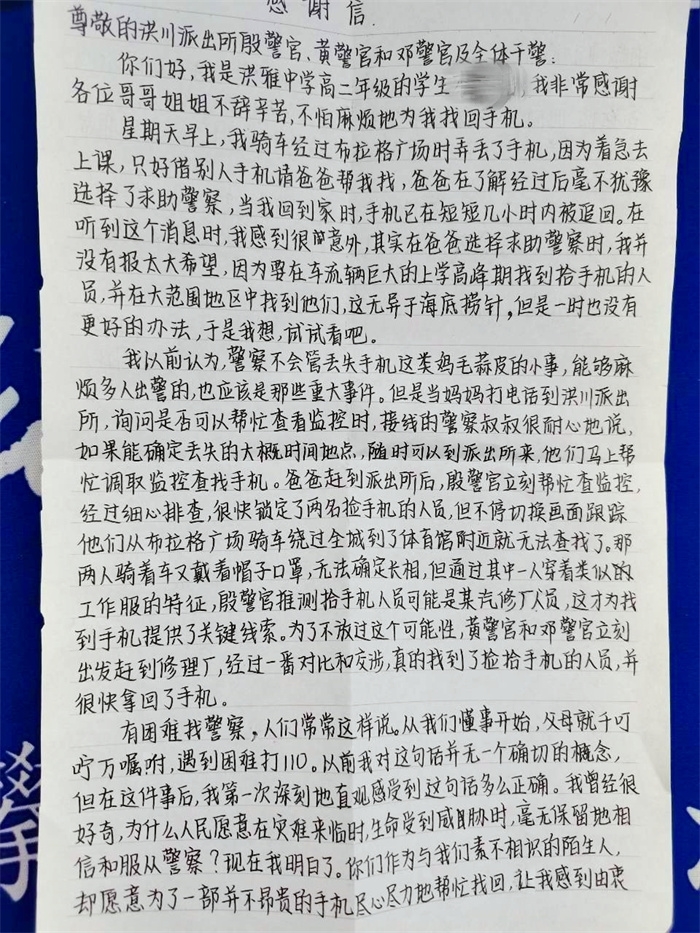 感谢信.
尊敬的洪川派出所殷警官、黄警官和邓警官及全体干警：
你们好，我是洪雅中学高二年级的学生 ，我非常感谢
各位哥哥姐姐不辞辛苦，不怕麻烦地为我找回手机。
星期天早上，我骑车经过布拉格广场时弄丢了手机，因为着急去
上课，只好借别人手机请爸爸帮我找，爸爸在了解经过后毫不犹豫
选择了求助警察，当我回到家时，手机已在短短几小时内被追回。在
听到这个消息时，我感到很意外，其实在爸爸选择求助警察时，我并
没有报太大希望，因为要在车流辆巨大的上学高峰期找到拾手机的人
员，并在大范围地区中找到他们，这无异于海底捞针，但是一时也没有
更好的办法，于是我想，试试看吧。
我以前认为，警察不会管丢失手机这类鸡毛蒜皮的小事，能够麻
烦多人出警的，也应该是那些重大事件。但是当妈妈打电话到洪川派出
所，询问是否可以帮忙查看监控时，接线的警察叔叔很耐心地说，
如果能确定丢失的大概时间地点，随时可以到派出所来，他们马上帮
忙调取监控查找手机。爸爸赶到派出所后，殷警官立刻帮忙查监控，
经过细心排查，很快锁定了两名捡手机的人员，但不停切换画面跟踪
他们从布拉格广场骑车绕过全城到了体育馆附近就无法查找了。那
两人骑着车又戴着帽子口罩，无法确定长相，但通过其中一人穿着类似的
工作服的特征，殷警官推测拾手机人员可能是某汽修厂人员，这才为找
到手机提供了关键线索。为了不放过这个可能性，黄警官和邓警官立刻
出发赶到修理厂，经过一番对比和交涉，真的找到了捡拾手机的人员，并
很快拿回了手机。
有困难找警察，人们常常这样说。从我们懂事开始，父母就千叮
咛万嘱咐，遇到困难打110。以前我对这句话并无一个确切的概念，
但在这件事后，我第一次深刻地直观感受到这句话多么正确。我曾经很
好奇，为什么人民愿意在灾难来临时，生命受到威胁时，毫无保留地相
信和服从警察？现在我明白了。你们作为与我们素不相识的陌生人，
却愿意为了一部并不昂贵的手机尽心尽力地帮忙找回，让我感到由衷
攀